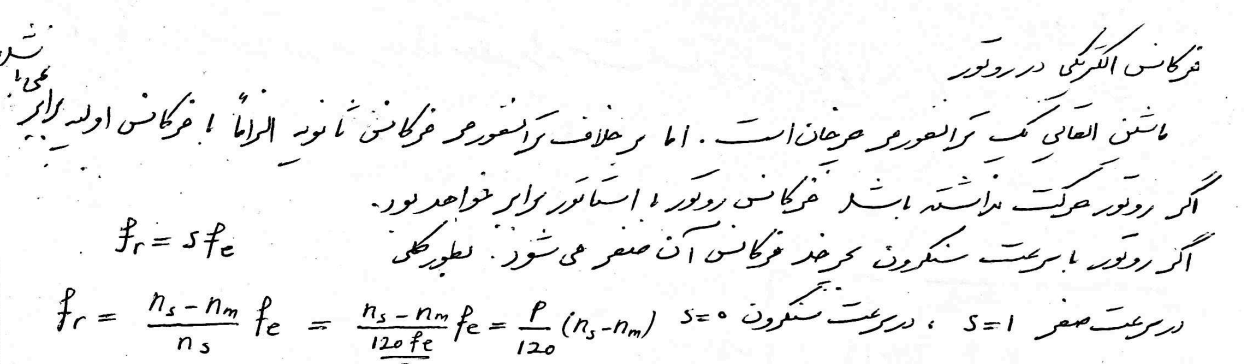 فرکانس الکتریکی در روتور
ماشین القائی یک ترانسفورمر چرخان است. اما برخلاف ترانسفورمر فرکانس ثانویه الزاماً با فرکانس اولیه برابر نمی‌باشد
اگر روتور حرکت نداشته باشد فرکانس روتور با استاتور برابر خواهد بود.
اگر روتور با سرعت سنکرون بچرخد فرکانس آن صفر می‌شود. بطور کلی fr = s fe
در سرعت صفر s=1 ، در سرعت سنکرون s=0
fr = (ns - nm)/ns fe = (ns - nm)/(120 fe) fe = P/120 (ns - nm)